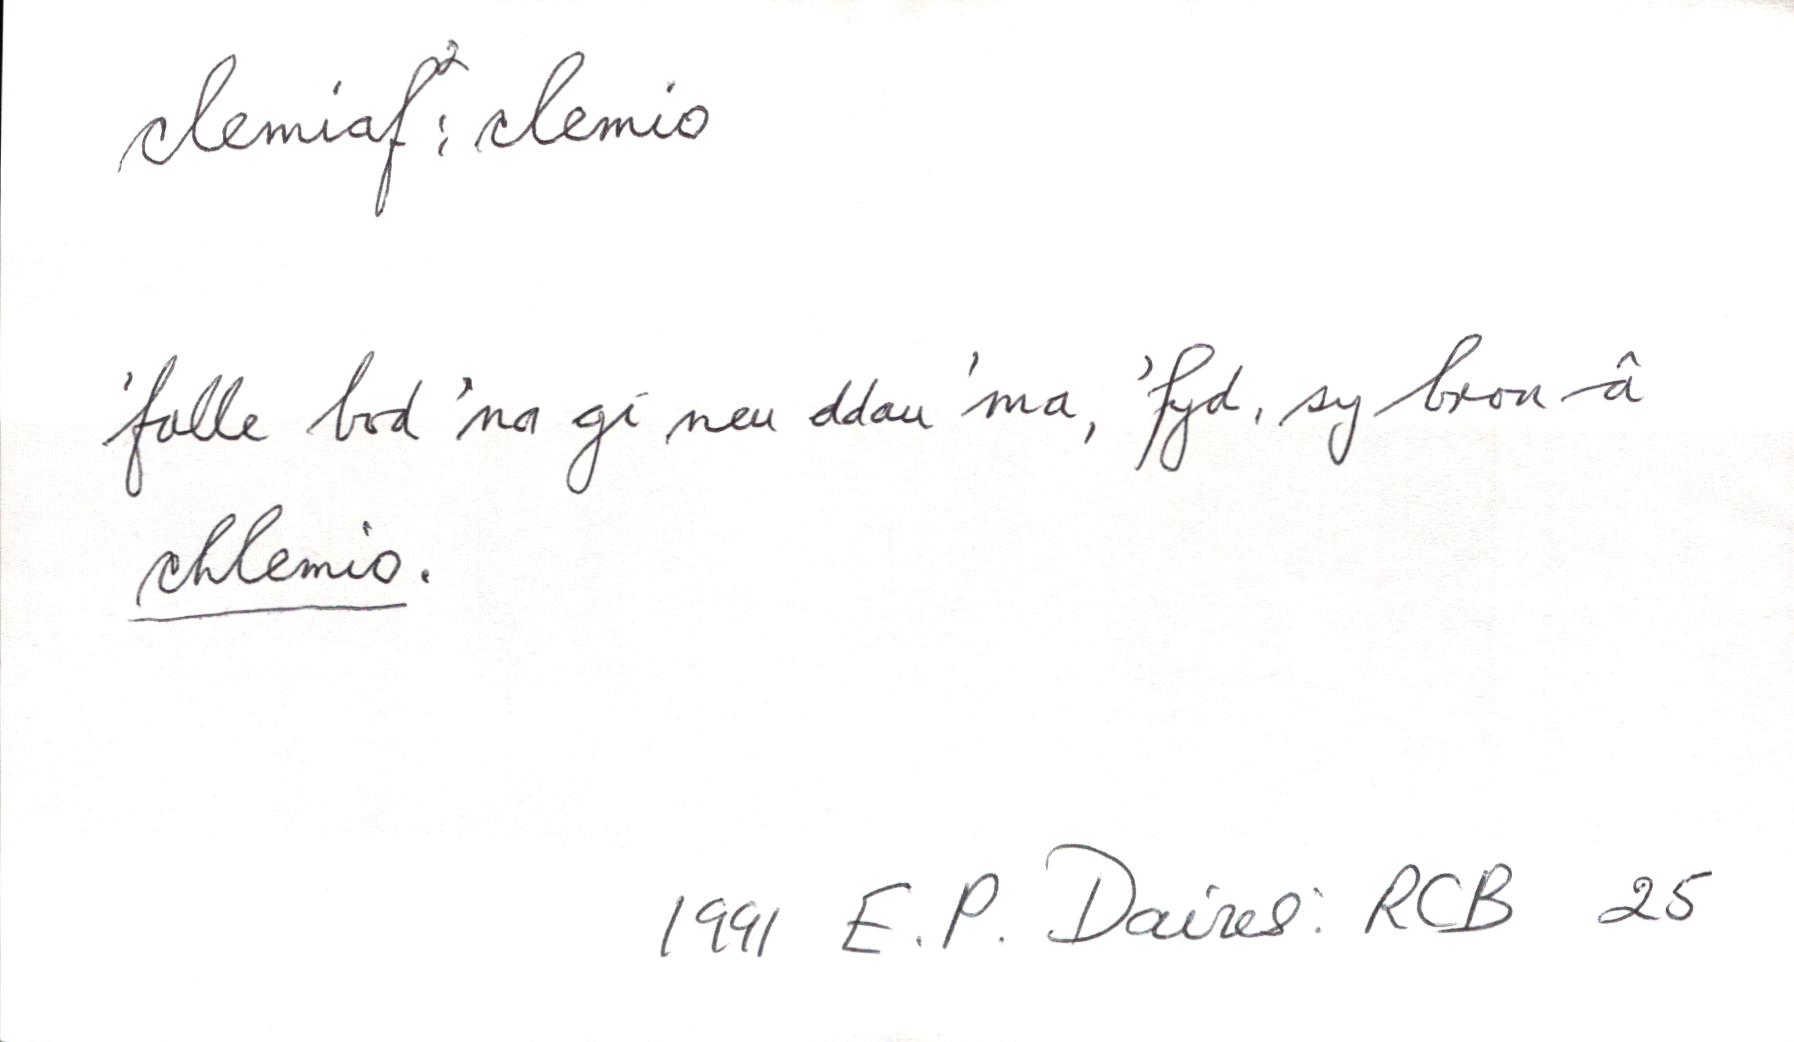 clemiaf²: clemio
'falle bod 'na gi neu ddau 'ma, 'fyd, sy bron â
chlemio.
1991 E.P. Davies: RCB 25